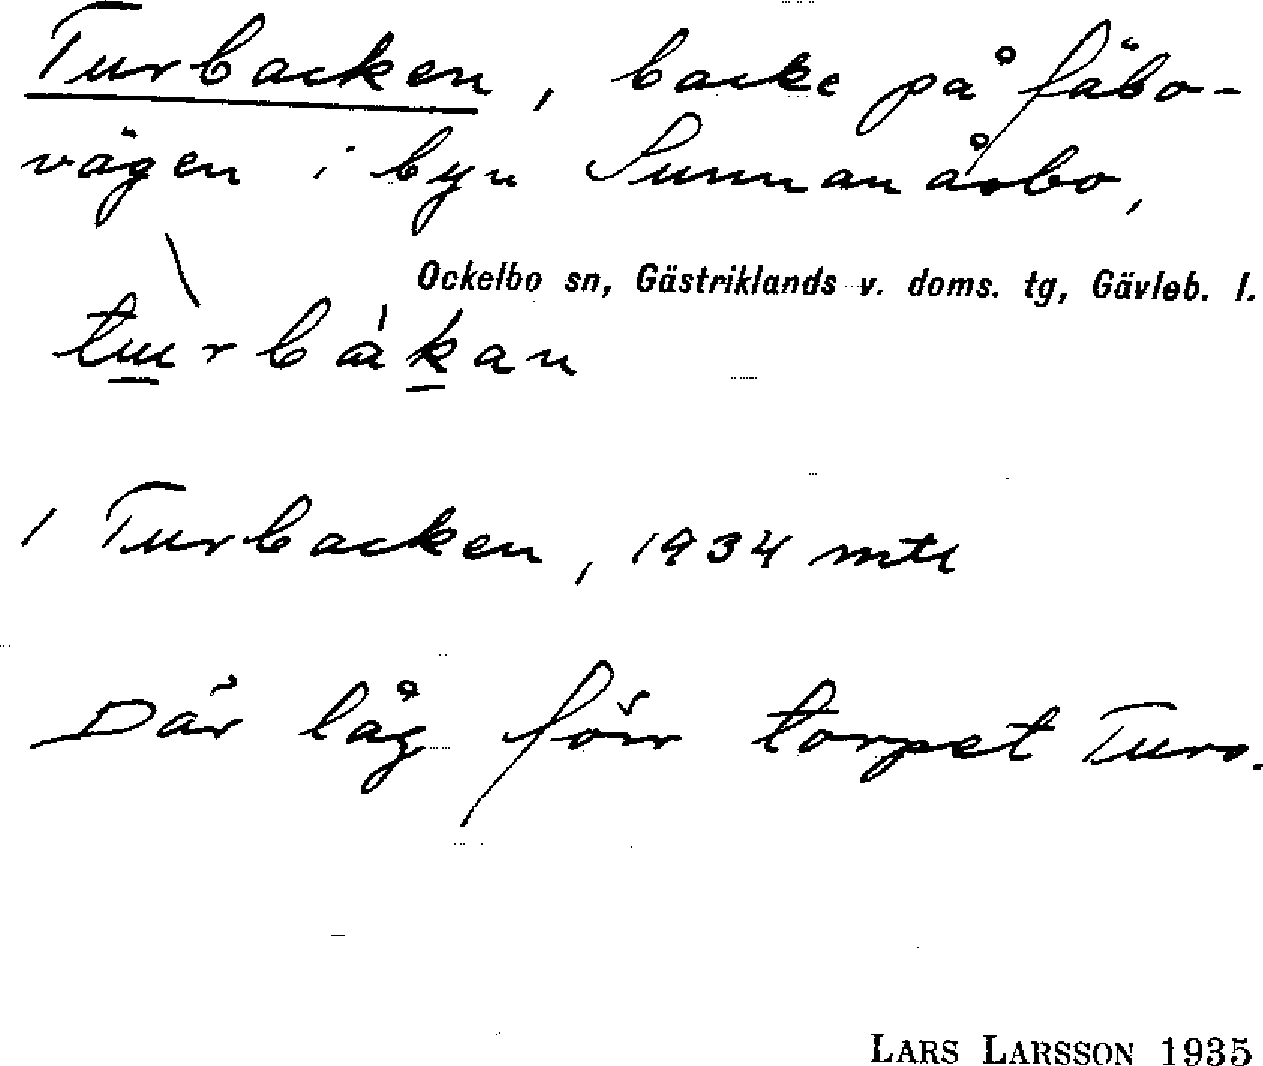 Turbacken, backe på fäbo-
vägen i byn Sunnanåsbo,
Ockelbo sn, Gästriklands v. doms. tg, Gävleb. l.
1 Turbacken, 1934 mtl
Där låg förr torpet Turs.
LARS LARSSON 1935